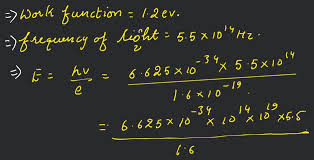 ⇒ Work function = 1.2 ev.
⇒ frequency of light = 5.5 × 10^14 Hz.
⇒ E = hν / e = 6.625 × 10^-34 × 5.5 × 10^14 / 1.6 × 10^-19
= 6.625 × 10^-34 × 10^14 × 10^19 × 5.5 / 1.6